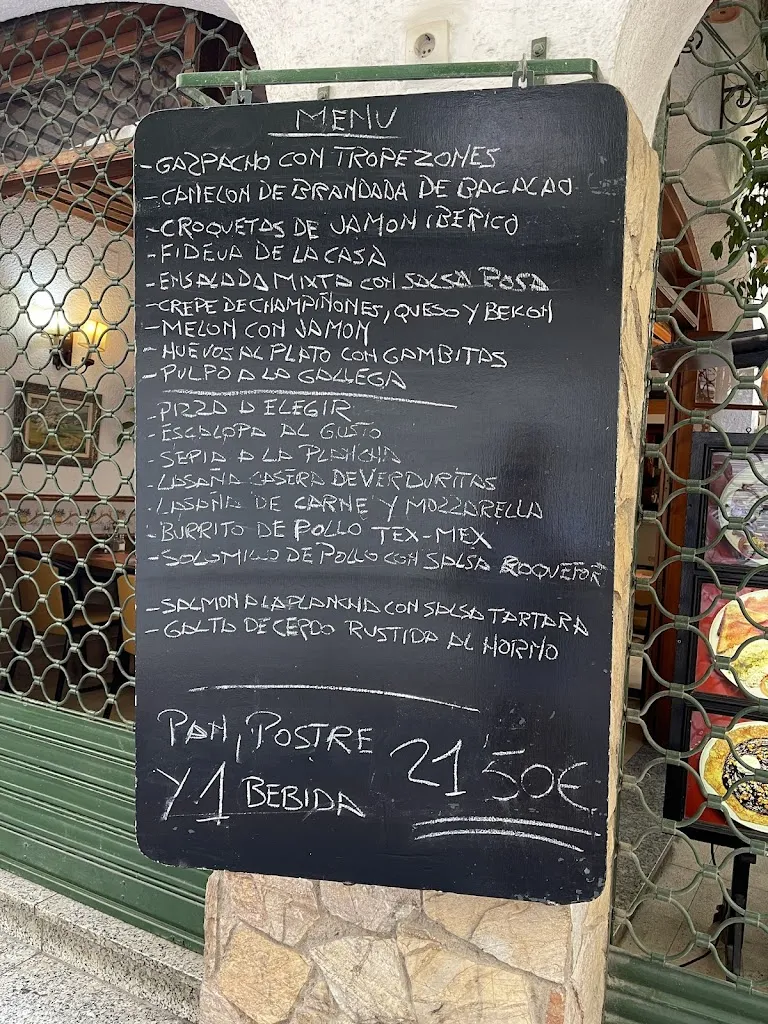 MENU
- GAZPACHO CON TROPEZONES
- CANELON DE BRANDADA DE BACALAO
- CROQUETAS DE JAMON IBERICO
- FIDEUA DE LA CASA
- ENSALADA MIXTA CON SALSA ROSA
- CREPE DE CHAMPIÑONES, QUESO Y BEKON
- MELON CON JAMON
- HUEVOS AL PLATO CON GAMBITAS
- PULPO A LA GALLEGA
- PIZZA A ELEGIR
- ESCALOPA AL GUSTO
- SEPIA A LA PLANCHA
- LASAÑA CASERA DE VERDURITAS
- LASAÑA DE CARNE Y MOZZARELLA
- BURRITO DE POLLO TEX-MEX
- SOLOMILLO DE POLLO CON SALSA ROQUEFOR
- SALMON A LA PLANCHA CON SALSA TARTARA
- GALTA DE CERDO RUSTIDA AL HORNO
PAN, POSTRE
Y 1 BEBIDA 21'50€